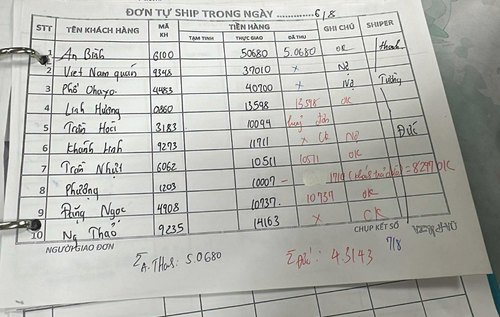 ĐƠN TỰ SHIP TRONG NGÀY ............. 6/8
STT TÊN KHÁCH HÀNG MÃ KH TIỀN HÀNG GHI CHÚ SHIPER
TẠM TÍNH THỰC GIAO ĐÃ THU
1 An Bình 6100 50680 5.0680 OK
2 Việt Nam quán 9348 37010 x Nợ
3 Phố Ohayo 4483 40700 x Nợ Tường
4 Linh Hương 0860 13598 13598 OK
5 Trần Hoci 3183 10044 huỷ đơn
6 Khánh Linh 9293 11711 x CK Nợ Đức
7 Trần Nhựt 6062 10511 10511 OK
8 Phượng 1203 10007 - 1710 = 8297 OK
9 Đặng Ngọc 4908 10737 10737 OK
10 Ng Thảo 9235 14163 x CK
NGƯỜI GIAO ĐƠN CHỤP KẾT SỐ 7/8
Σ A. Thanh: 5.0680 Σ Đức: 4.3143